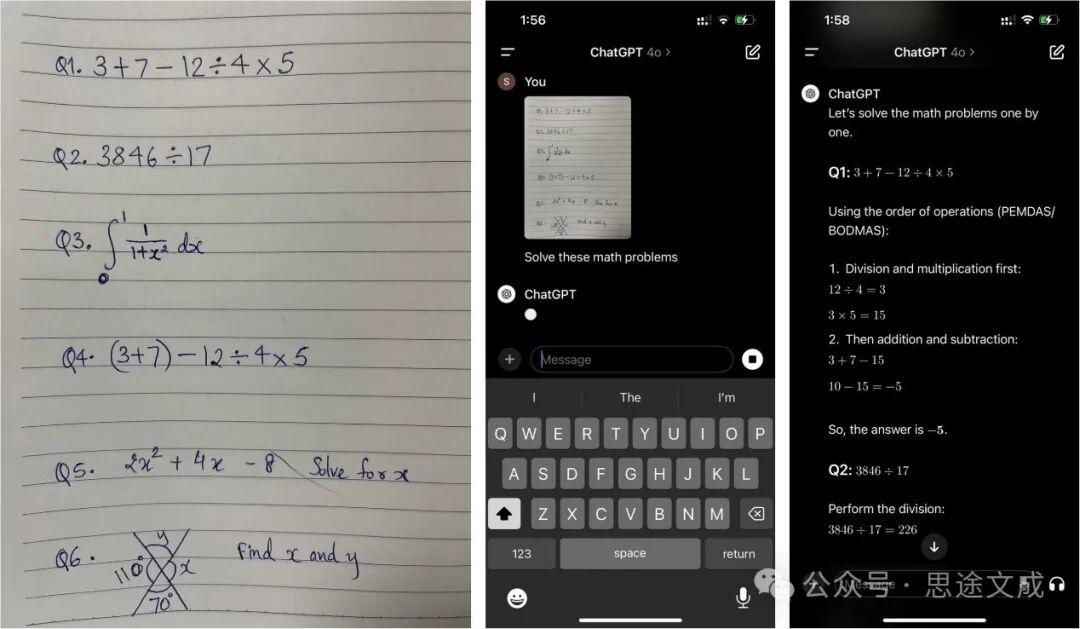 Q1. 3+7-12÷4×5
Q2. 3846÷17
Q3. ∫₀¹ 1/(1+x²) dx
Q4. (3+7)-12÷4×5
Q5. 2x² + 4x - 8 Solve for x
Q6. Find x and y
y
110° x
70°
1:56
ChatGPT 4o >
S You
Q1. 3+7-12÷4×5
Q2. 3846÷17
Q4. (3+7)-12÷4×5
Q5. 2x² + 4x - 8 Solve for x
Find x and y
Solve these math problems
ChatGPT
Message
I The I'm
Q W E R T Y U I O P
A S D F G H J K L
Z X C V B N M
123 space return
1:58
ChatGPT 4o >
ChatGPT
Let's solve the math problems one by
one.
Q1: 3 + 7 − 12 ÷ 4 × 5
Using the order of operations (PEMDAS/
BODMAS):
1. Division and multiplication first:
12 ÷ 4 = 3
3 × 5 = 15
2. Then addition and subtraction:
3 + 7 − 15
10 − 15 = −5
So, the answer is −5.
Q2: 3846 ÷ 17
Perform the division:
3846 ÷ 17 = 226
Message
公众号 · 思途文成